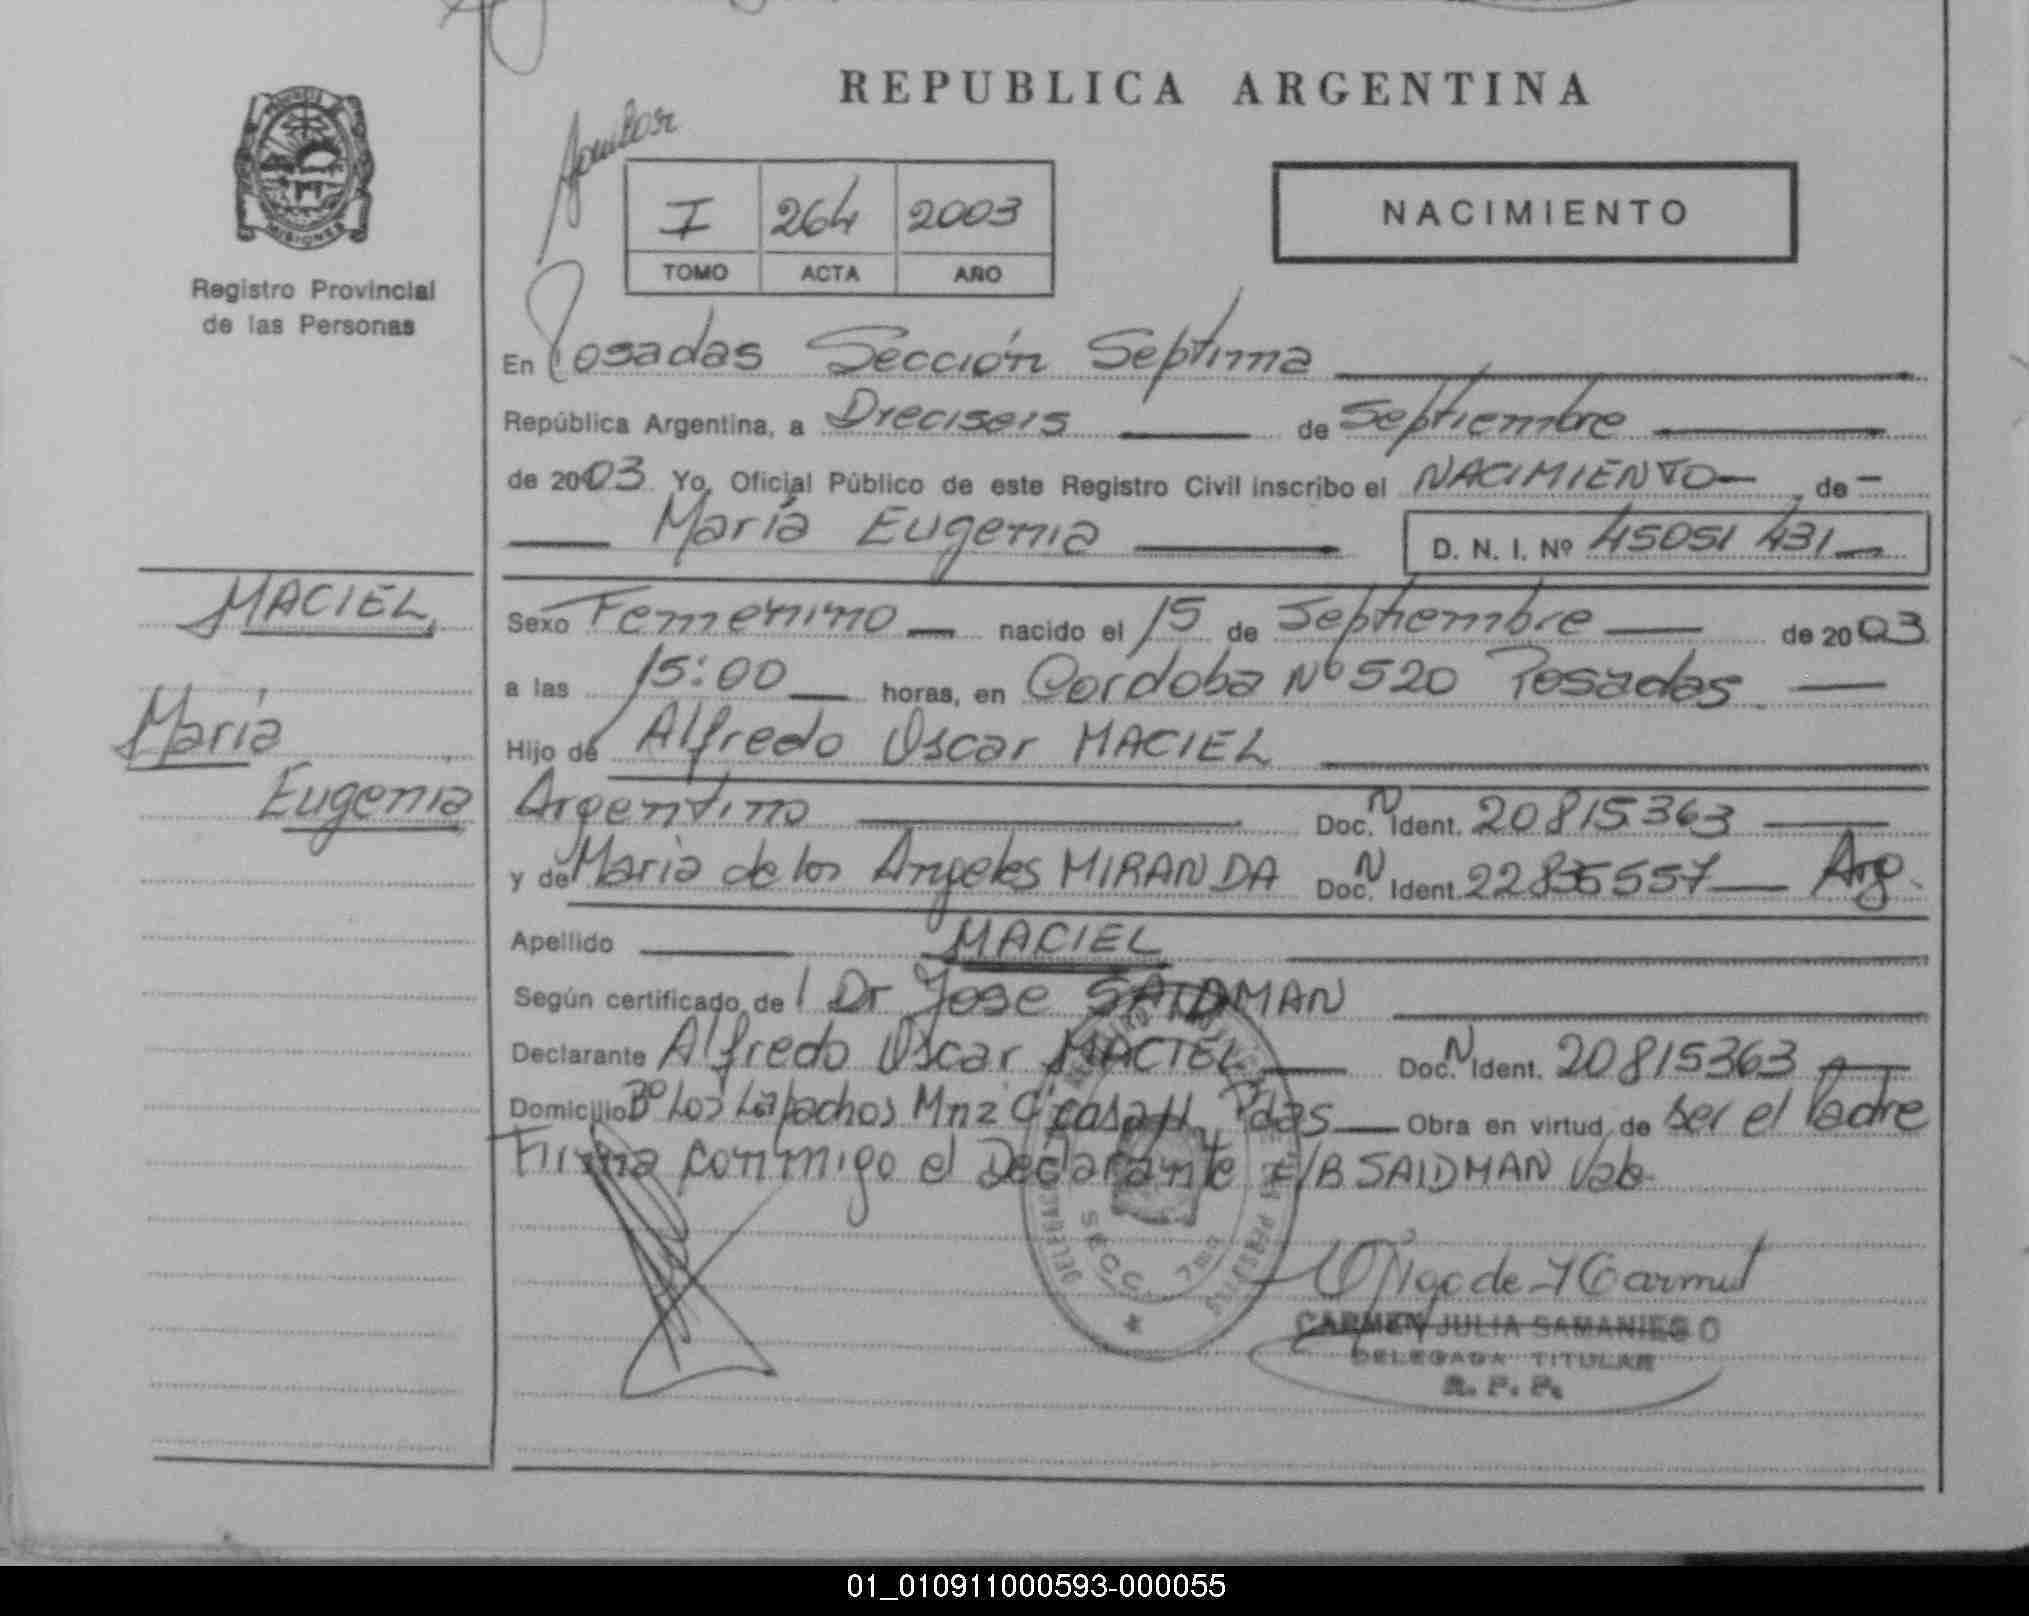 REPUBLICA ARGENTINA
MISIONES
Registro Provincial
de las Personas
I 264 2003
TOMO ACTA AÑO
NACIMIENTO
En Posadas Sección Septima
República Argentina, a Dieciseis de Septiembre
de 2003 Yo, Oficial Público de este Registro Civil inscribo el NACIMIENTO , de
María Eugenia D. N. I. Nº 45051431
MACIEL,
María
Eugenia
Sexo Femenino nacido el 15 de Septiembre de 2003
a las 15:00 horas, en Cordoba Nº 520 Posadas
Hijo de Alfredo Oscar MACIEL
Argentino Doc. N Ident. 20815363
y de Maria de los Angeles MIRANDA Doc. N Ident. Arg.
Apellido MACIEL
Según certificado de l Dr Jose SAIDMAN
Declarante Alfredo Oscar MACIEL Doc. N Ident. 20815363
Domicilio Bº Los Lapachos Mnz casa Pdas Obra en virtud de ser el Padre
Firma conmigo el Declarante E/B SAIDMAN Vale
SECC. 7ma
CARMEN JULIA SAMANIEGO
DELEGADA TITULAR
R. P. P.
01_010911000593-000055